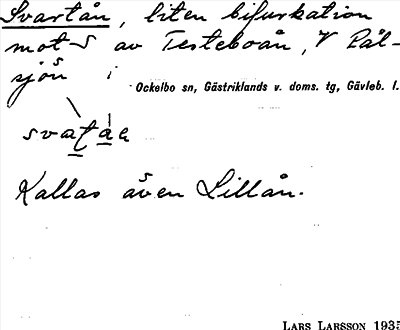 Svartån, liten bifurkation
mot S av Testeboån, V Pål-
sjön i
Ockelbo sn, Gästriklands v. doms. tg, Gävleb. l.
Kallas även Lillån.
LARS LARSSON 1935